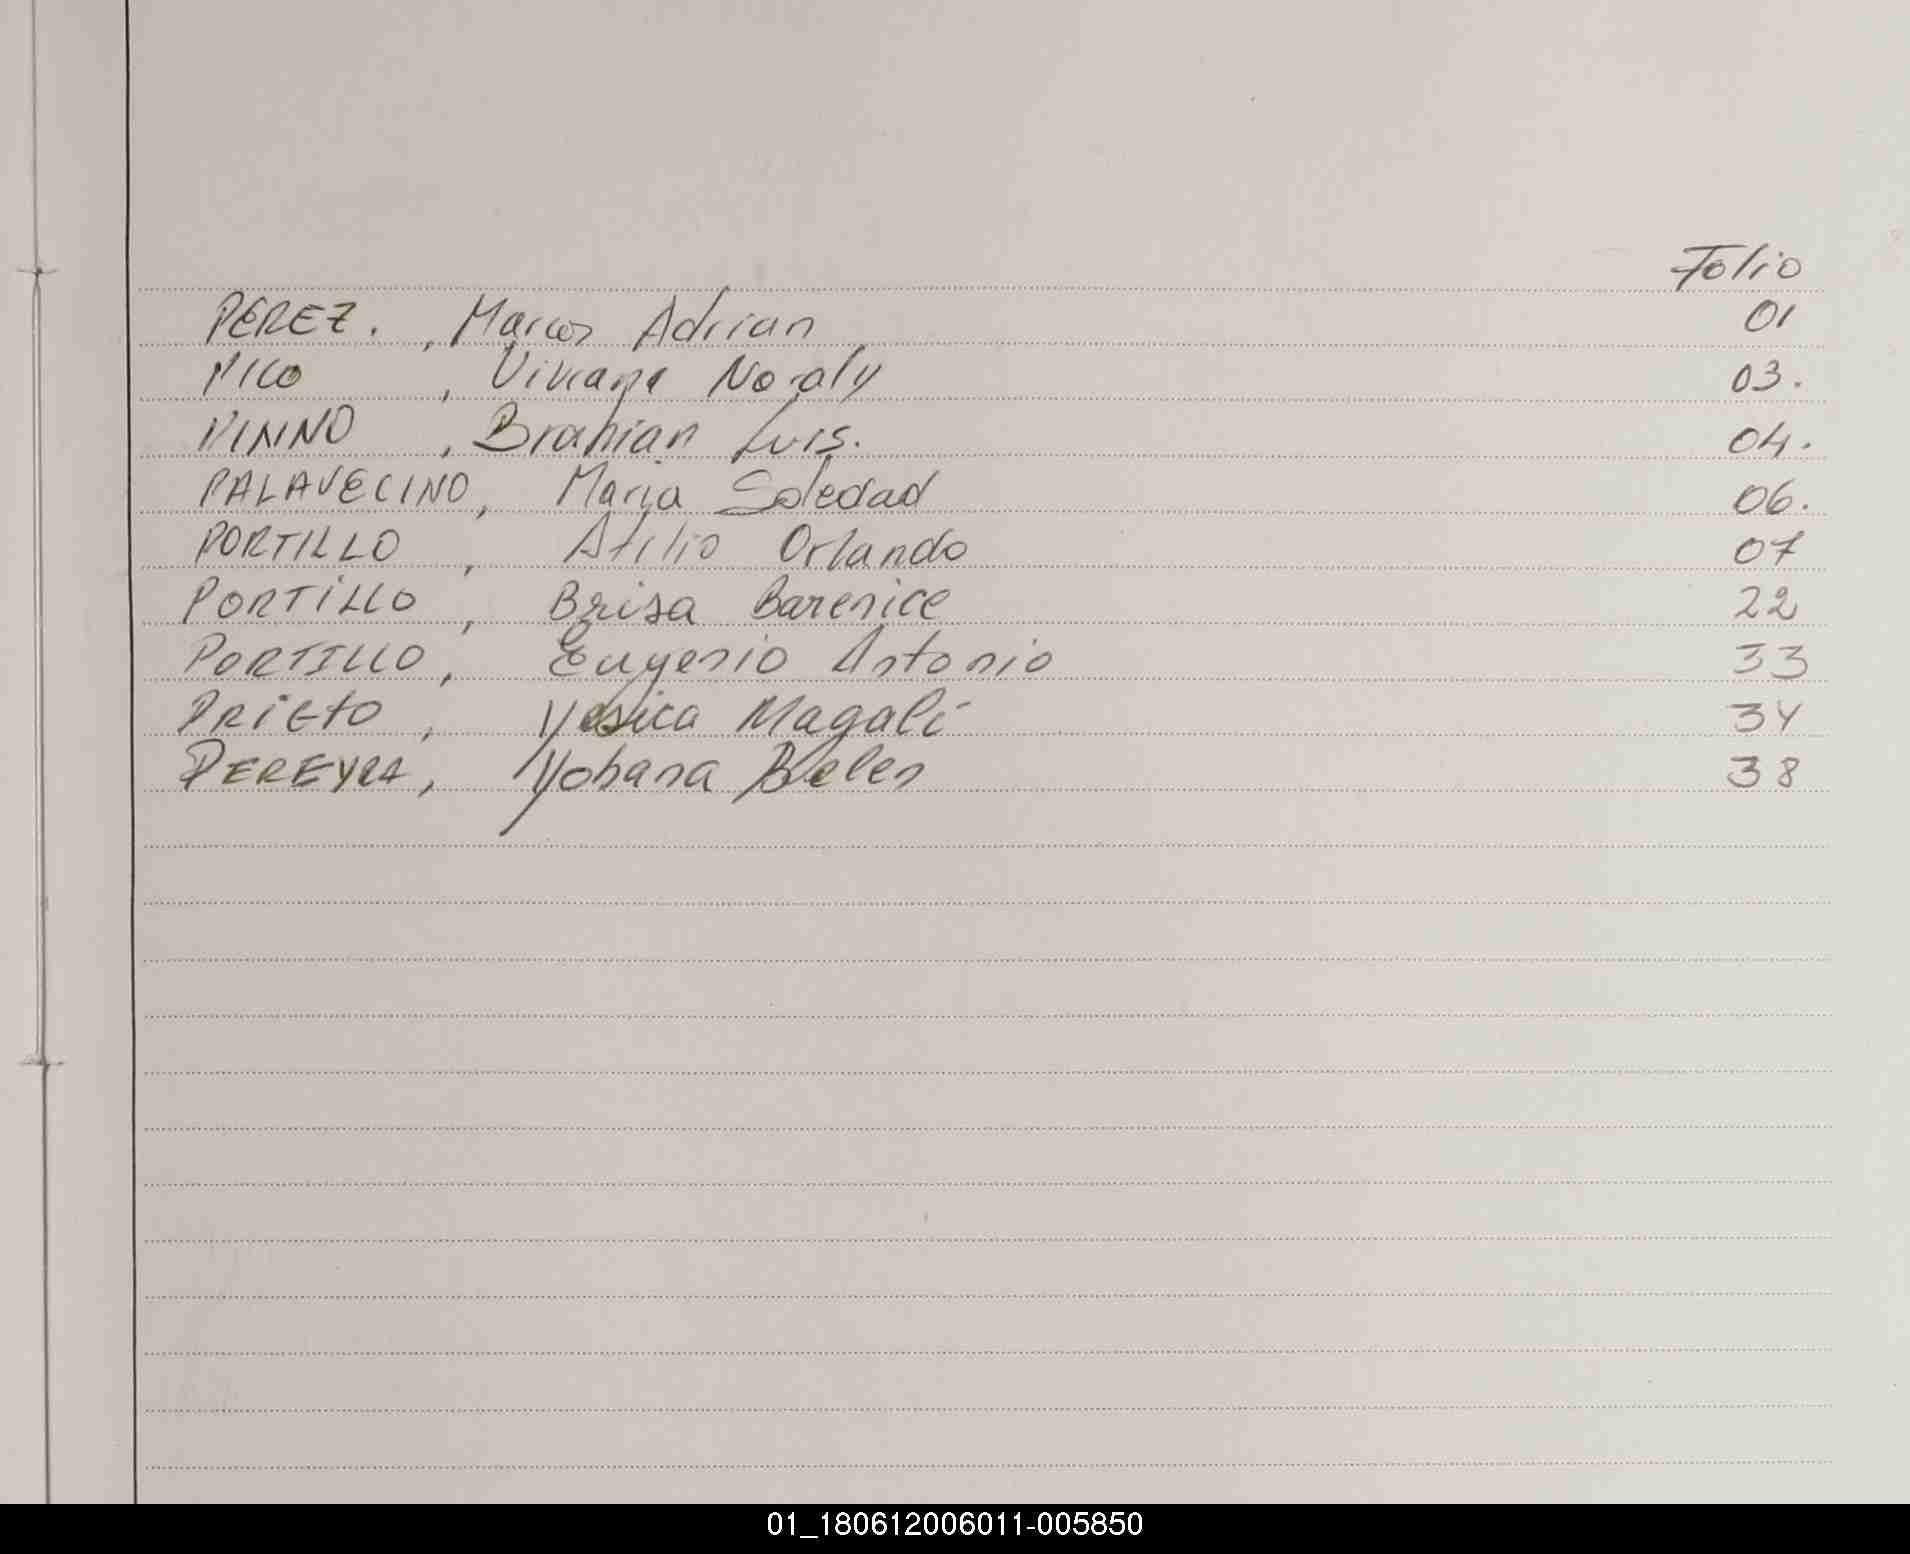 Folio
PEREZ. , Marcos Adrian 01
PICO , Viviana Noraly 03.
PINNO , Brahian Luis. 04.
PALAVECINO, Maria Soledad 06.
PORTILLO , Atilio Orlando 07
PORTILLO , Brisa Barenice 22
PORTILLO, Eugenio Antonio 33
PRIETO , Yesica Magalí 34
PEREYRA, Yohana Belen 38
01_180612006011-005850